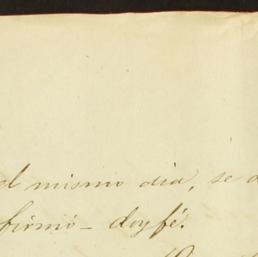 el mismo dia, se
firmó - doy fé.